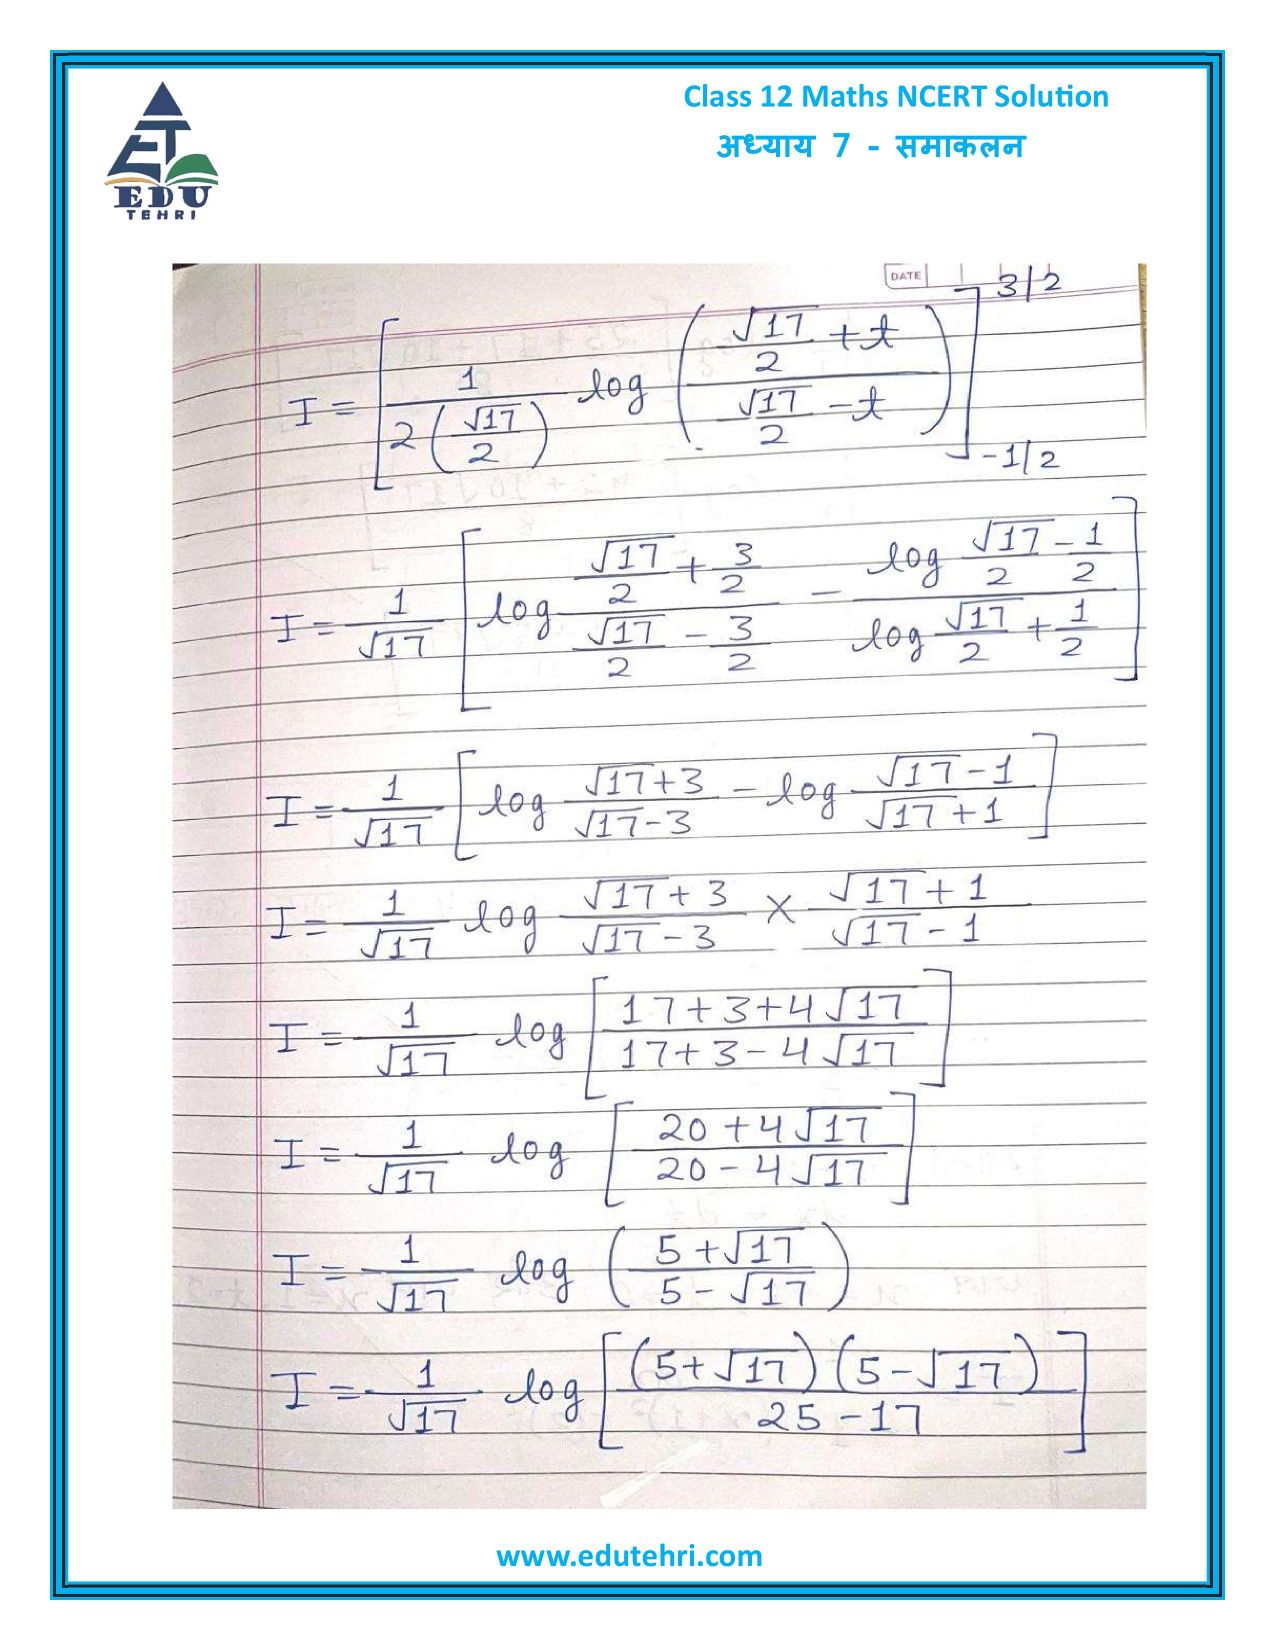 Class 12 Maths NCERT Solution
अध्याय 7 - समाकलन
EDU
TEHRI
DATE
I = [ 1 / 2(√17/2) log ( (√17/2 + t) / (√17/2 - t) ) ] 3/2 -1/2
I = 1/√17 [ log (√17/2 + 3/2) / (√17/2 - 3/2) - (log √17/2 - 1/2) / (log √17/2 + 1/2) ]
I = 1/√17 [ log (√17+3)/(√17-3) - log (√17-1)/(√17+1) ]
I = 1/√17 log (√17+3)/(√17-3) × (√17+1)/(√17-1)
I = 1/√17 log [ (17+3+4√17)/(17+3-4√17) ]
I = 1/√17 log [ (20+4√17)/(20-4√17) ]
I = 1/√17 log ( (5+√17)/(5-√17) )
I = 1/√17 log [ (5+√17)(5-√17) / 25-17 ]
www.edutehri.com